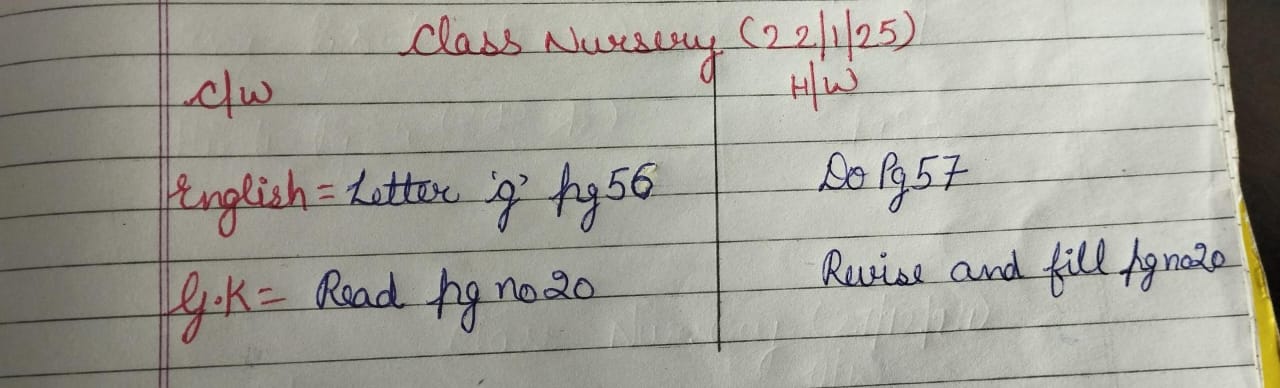 Class Nursery (22/1/25)
C/W H/W
English = Letter 'g' pg 56 Do Pg 57
G.K = Read pg no 20 Revise and fill pg no 20